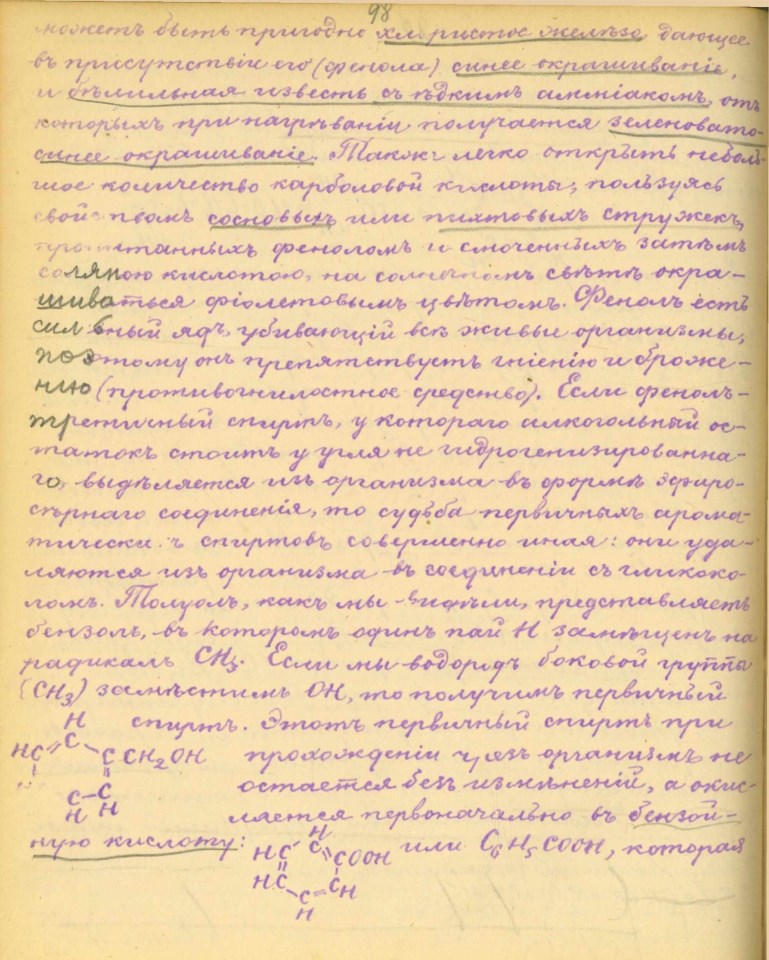 98
можетъ быть пригодно хлористое желѣзо, дающее
въ присутствіи его (фенола) синее окрашиваніе,
и бѣлильная известь съ ѣдкимъ амміакомъ, отъ
которыхъ при нагрѣваніи получается зеленовато-
синее окрашиваніе. Также легко открыть неболь-
шое количество карболовой кислоты, пользуясь
свойствомъ сосновыхъ или пихтовыхъ стружекъ,
пропитанныхъ феноломъ и смоченныхъ затѣмъ
соляною кислотою, на солнечномъ свѣтѣ окра-
шиваться фіолетовымъ цвѣтомъ. Фенолъ есть
сильный ядъ, убивающій всѣ живые организмы,
поэтому онъ препятствуетъ гніенію и броже-
нію (противогнилостное средство). Если фенолъ-
третичный спиртъ, у котораго алкогольный ос-
татокъ стоитъ у угля не гидрогенизированна-
го, выдѣляется изъ организма въ формѣ эфиро-
сѣрнаго соединенія, то судьба первичныхъ арома-
тически ъ спиртовъ совершенно иная: они уда-
ляются изъ организма въ соединеніи съ гликоко-
ломъ. Толуолъ, какъ мы видѣли, представляетъ
бензолъ, въ которомъ одинъ пай H замѣщенъ на
радикалъ CH₃. Если мы водородъ боковой группы
(CH₃) замѣстимъ OH, то получимъ первичный
спиртъ. Этотъ первичный спиртъ при
H
HC C C CH₂OH прохожденіи чрезъ организмъ не
остается безъ измѣненій, а окис-
C–C
H H
ляется первоначально въ бензой-
ную кислоту: H HC C CCOOH или C₆H₅COOH, которая
HC CH
C
H